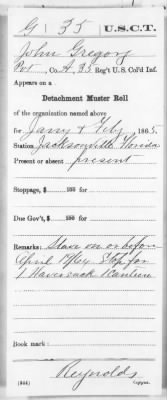 G | 35 | U.S.C.T.
John Gregory
Pvt, Co. A, 35 Reg't U.S. Col'd Inf.
Appears on a
Detachment Muster Roll
of the organization named above
for Jany & Feby, 1865.
Station Jacksonville Florida
Present or absent present
Stoppage, $ 100 for
Due Gov't, $ 100 for
Remarks: Slave on or before
April 19/61 Stop for
1 Haversack 1 Canteen
Book mark:
Reynolds
(344) Copyist.